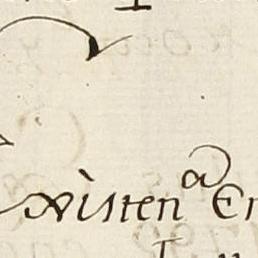 Existen.ª En